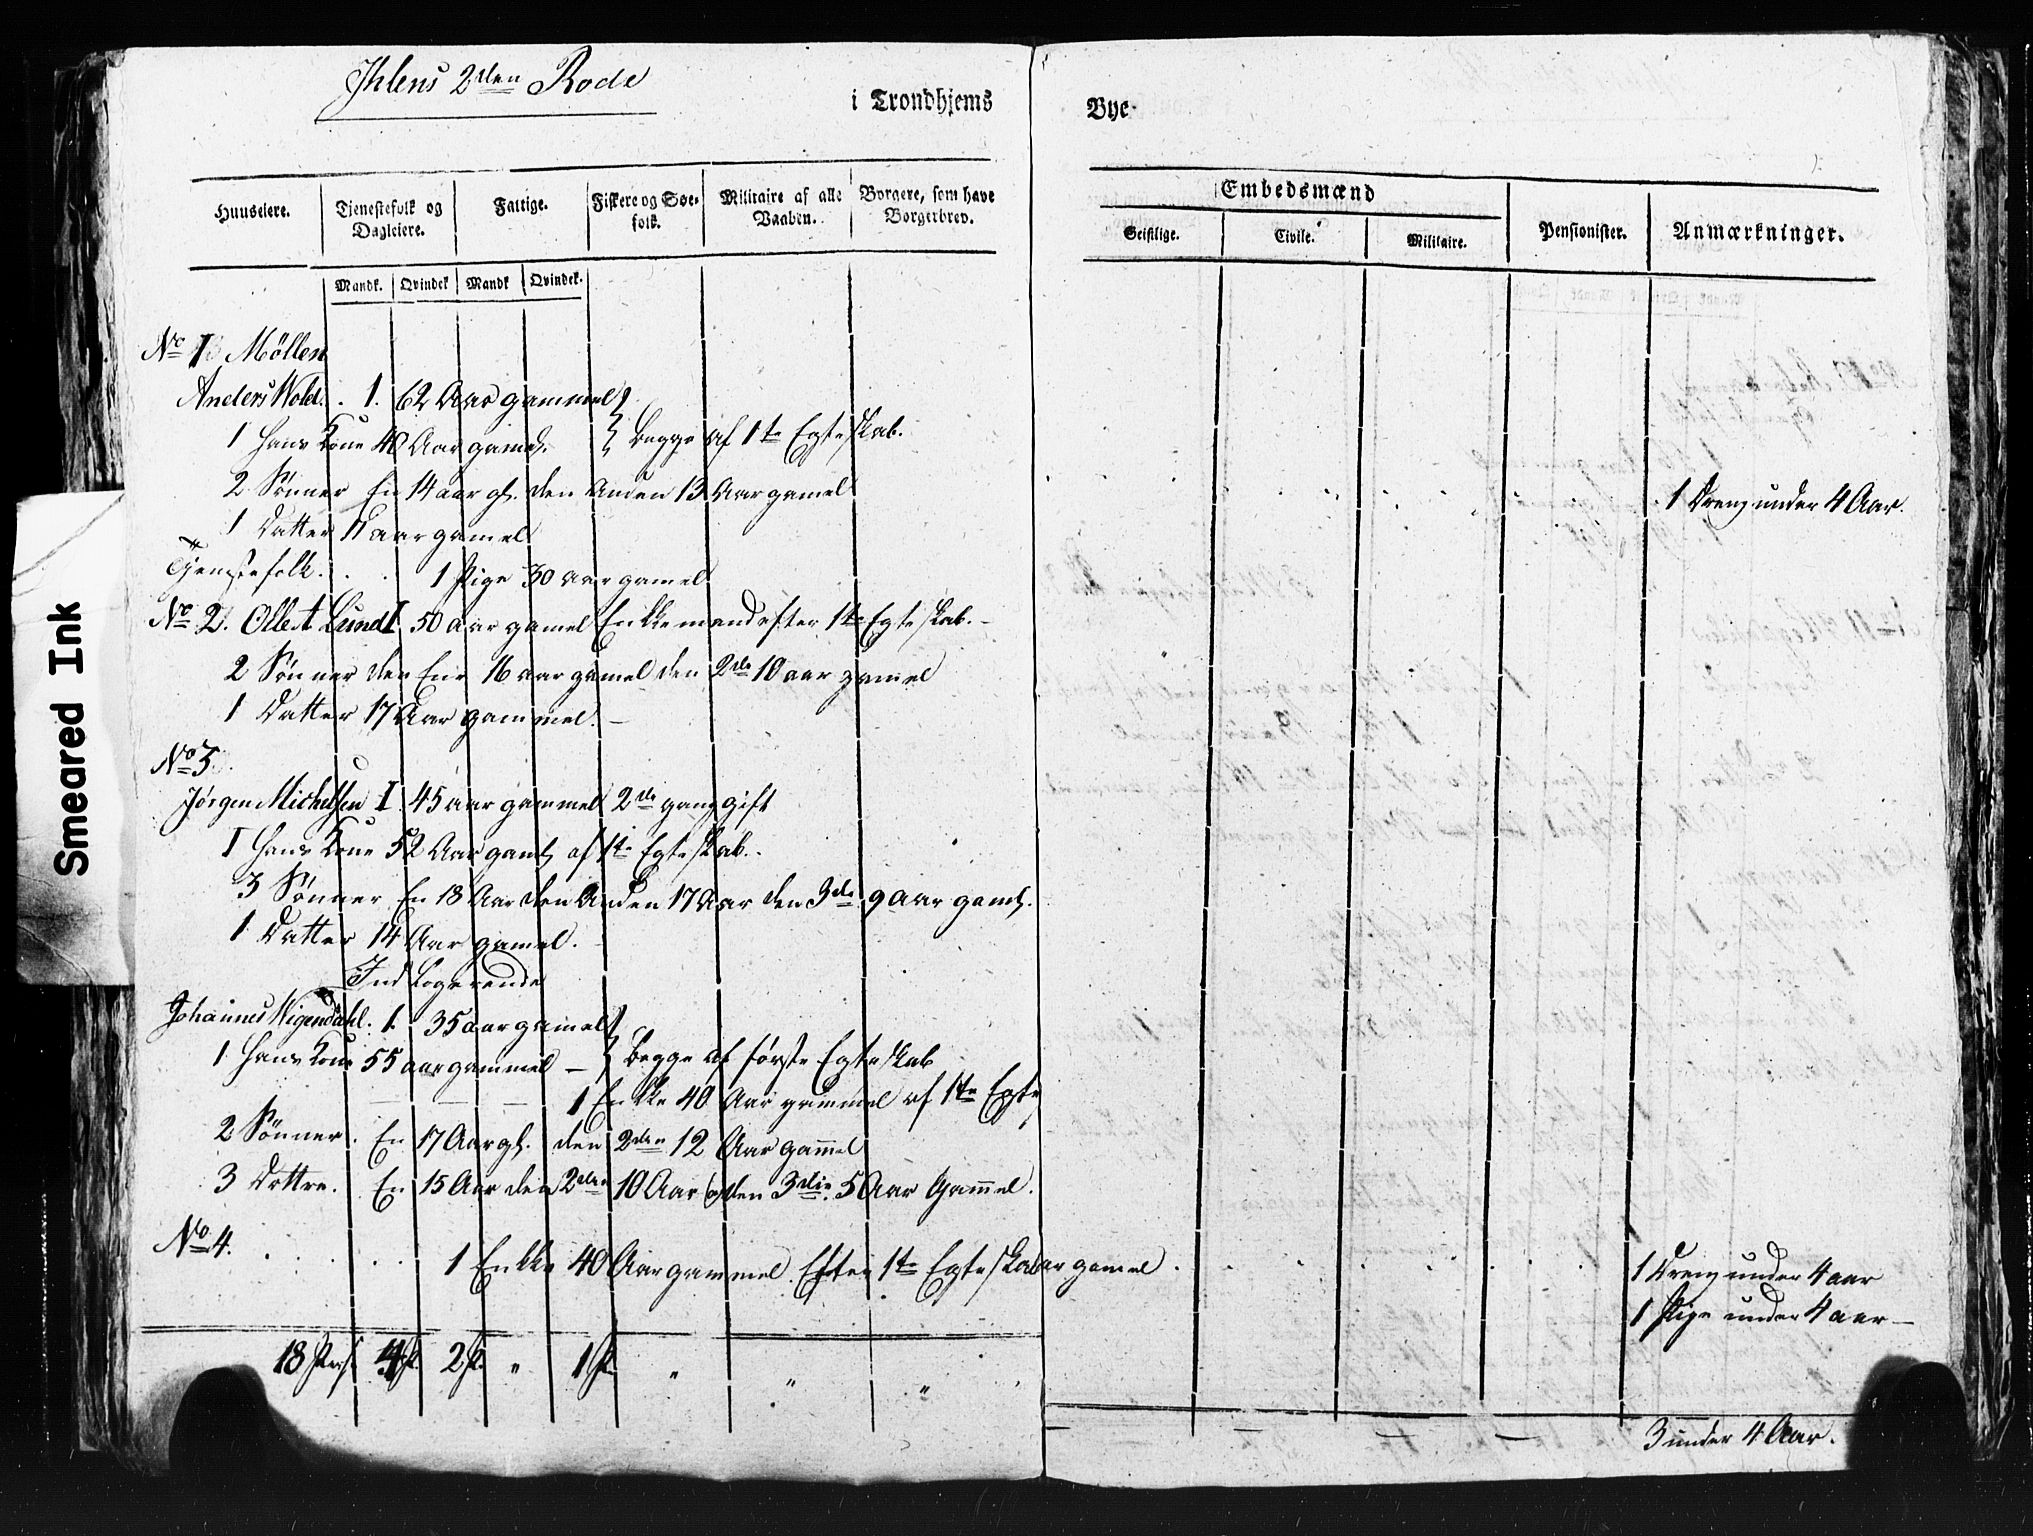 Ihlens 2den Rode
i Trondhjems Bye
Huuseiere. Tjenestefolk og Dagleiere. Fattige. Fiskere og Søefolk. Militaire af alle Vaaben. Borgere, som have Borgerbrev.
Embedsmænd
Geistlige. Civile. Militaire. Pensionister. Anmærkninger.
Mandk. Qvindek Mandk Qvindek.
No 1 Möllen
Anders Wold. . 1. 62 Aar gammel
1 Hans Kone 48 Aar gaml. } begge af 1te Egteskab.
2 Sønner En 14 aar gl. den anden 13 Aar gamel 1 Dreng under 4 Aar.
1 Datter 11 aar gamel
Tjenstefolk. . . 1 Pige 30 aar gamel
No 2. Olle A Lund I 50 aar gamel Enkkemand efter 1te Egteskab. -
2 Sønner den Ene 16 aar gamel den 2de 10 aar gamel
1 Datter 17 Aar gammel. -
No 3.
Jörgen Michelsen I 45 aar gammel 2de gang gift
1 Hans Kone 52 Aar gaml af 1te Egteskab.
3 Sønner En 18 Aar den Anden 17 Aar den 3de 9 Aar gaml.
1 Datter 14 Aar gamel.
Ind logerende
Johannes Wigendahl. 1. 35 aar gamel
1 Hans Kone 55 aar gammel - } begge af første Egteskab
1 Enkke 40 Aar gammel af 1te Egte
2 Sønner. En 17 Aar gl. den 2den 12 Aar gammel
3 Dottre. En 15 Aar den 2den 10 Aar og den 3die 5 Aar Gammel.
No 4. . . . 1 Enkke 40 Aar gammel. Efter 1te Egteskab ar gamel . 1 Dreng under 4 aar
1 Pige under 4 aar -
18 Pers 4 P. 2 P. " 1 P. " " "
3 under 4 Aar.
Smeared Ink